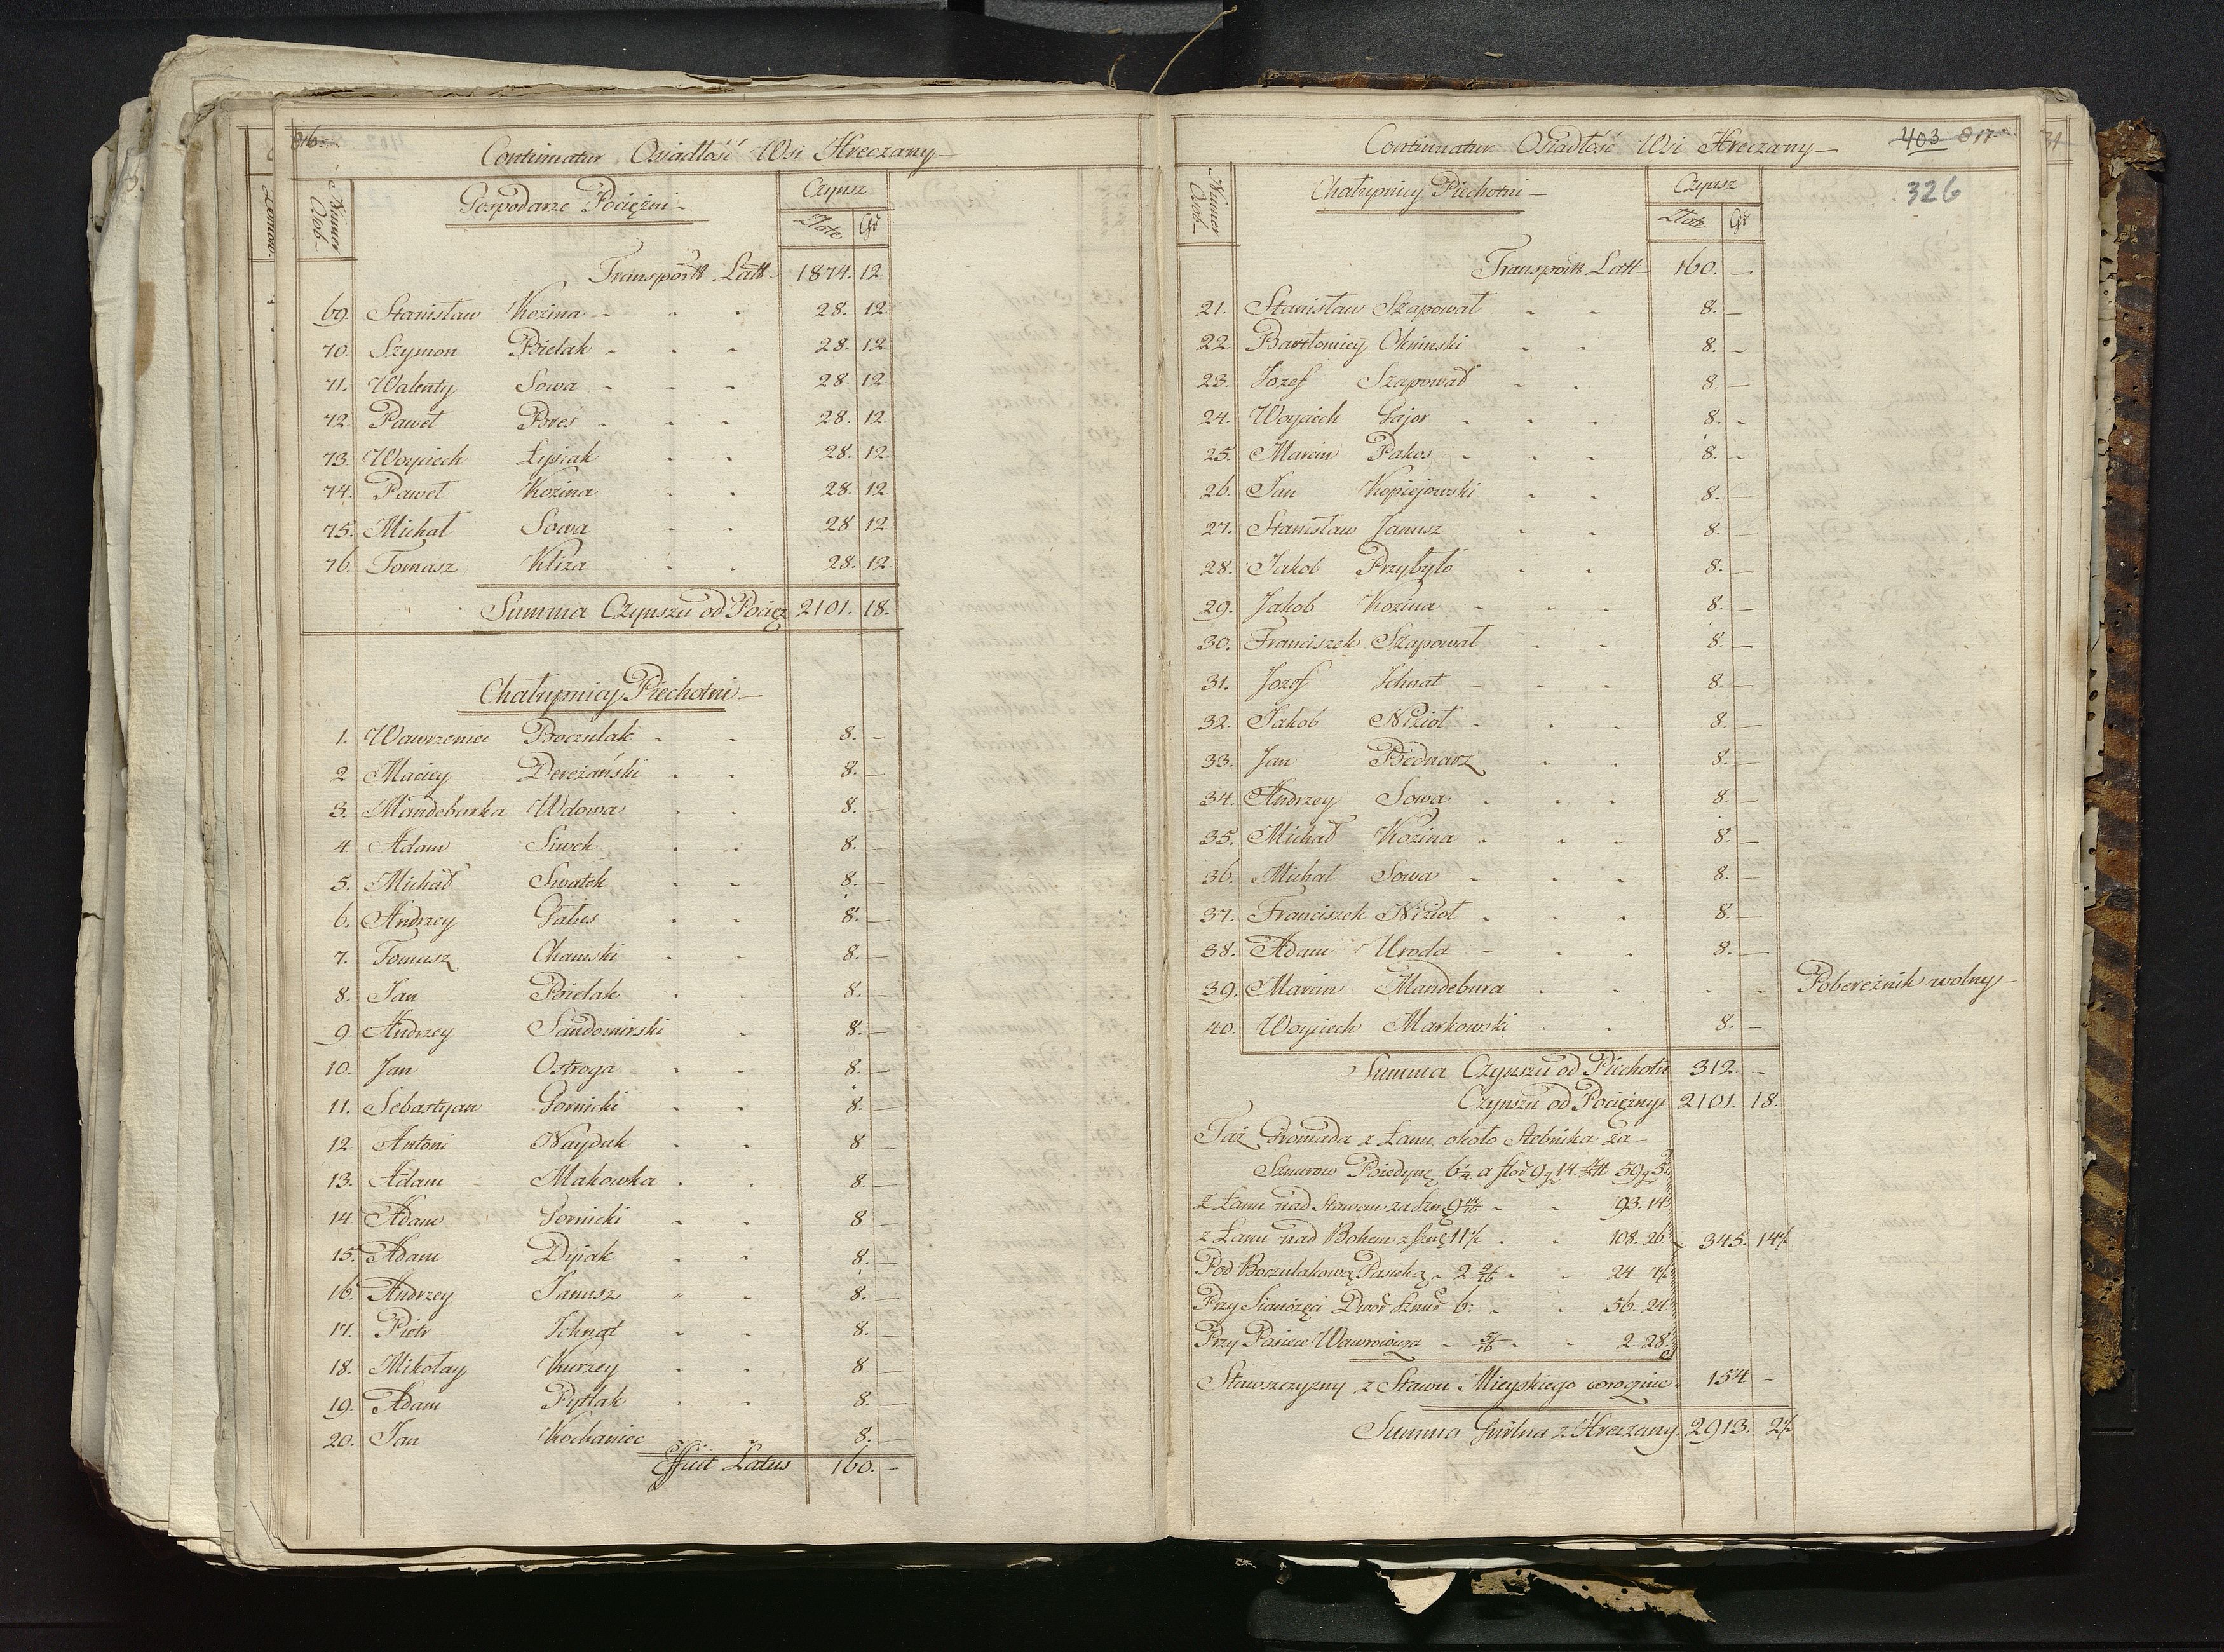 816.
Continuatur Osiadłość Wsi Hreczany
Numer Osob
Gospodarze Pociężni
Czynsz
Złote Gr
Transport Latt 1874. 12
69. Stanisław Kozina - - - 28. 12
70. Szymon Bielak - - - 28. 12
71. Walenty Sowa - - - 28. 12
72. Paweł Bres - - - 28. 12
73. Woyciech Łysiak - - 28. 12
74. Paweł Kozina - - 28. 12
75. Michał Sowa - - 28 12
76. Tomasz Kliza - - 28. 12
Summa Czynszu od Pocięż 2101. 18.
Chałupnicy Piechotni
1. Wawrzeniec Boczulak - - 8. —
2 Maciey Dereżański - - 8. —
3. Mandeburka Wdowa - - 8. —
4 Adam Siwek - - 8. —
5. Michał Swatek - - 8. —
6. Andrzey Galus - - 8. —
7. Tomasz Chamski - - 8. —
8. Jan Bielak - - 8. —
9. Andrzey Sandomirski - 8. —
10. Jan Ostroga - - 8. —
11. Sebastyan Gornicki - - 8. —
12 Antoni Nayduk - - 8 —
13. Adam Makowka - - 8. —
14. Adam Gornicki - - 8 —
15. Adam Dyjak - - 8. —
16. Andrzey Janusz - - 8. —
17. Piotr Ichnat - - 8. —
18. Mikołay Kurzey - - 8 —
19. Adam Pytlak - - 8. —
20. Jan Kochaniec - 8. —
Efficit Latus 160. —
Continuatur Osiadłość Wsi Hreczany
403 817
326
Numer Osob
Chałupnicy Piechotni
Czynsz
Złote Gr
Transport Latt 160. —
21. Stanisław Szapował - - 8. —
22. Bartłomiey Okninski - - 8. —
23. Jozef Szapował - - 8. —
24. Woyciech Gajor - - - 8. -
25. Marcin Pakos - - - 8. -
26. Jan Kopiejowski - - 8. —
27. Stanisław Janusz - - 8. —
28. Jakob Przybyło - - 8. —
29. Jakob Kozina - - - 8. —
30. Franciszek Szapował - - 8. —
31. Jozef Ichnat - - - 8 —
32. Jakob Nizioł - - - 8. —
33. Jan Bednarz - - 8. —
34. Andrzey Sowa - - - 8. —
35. Michał Kozina - - - 8. —
36. Michał Sowa - - - 8. —
37. Franciszek Nizioł - - - 8. —
38. Adam Uroda - - - 8. —
39. Marcin Mandebura - - - - Pobereźnik wolny
40. Woyciech Markowski - - 8. —
Summa Czynszu od Piechotn 312. —
Czynszu od Pociężnyh 2101. 18.
Taż Gromada z Łanu około Stebnika za
Sznurow Biedynę 6¼ a 9 g 14 59 g 5
z Łanu nad Stawem za Szn 9 - - 93. 14
z Łanu nad Bohem z 11½ - - 108. 26 345. 14½
Pod Boczulakową Pasieką - 2 - - 24 7½
Przy Sianożęci Dwor Sznur 6: - - 56. 24
Przy Pasiece - 5/16 - - 2 28.
Stawszczyzny z Stawu Mieyskiego corocznie 154 -
Summa z Hreczany 2913. 2½